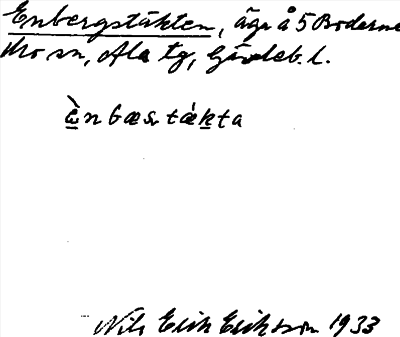 Enbergstäkten, äga å 5 Boderne
Mo sn, Ala tg, Gävleb. l.
ὲnbæstækta
Nils Erik Eriksson 1933